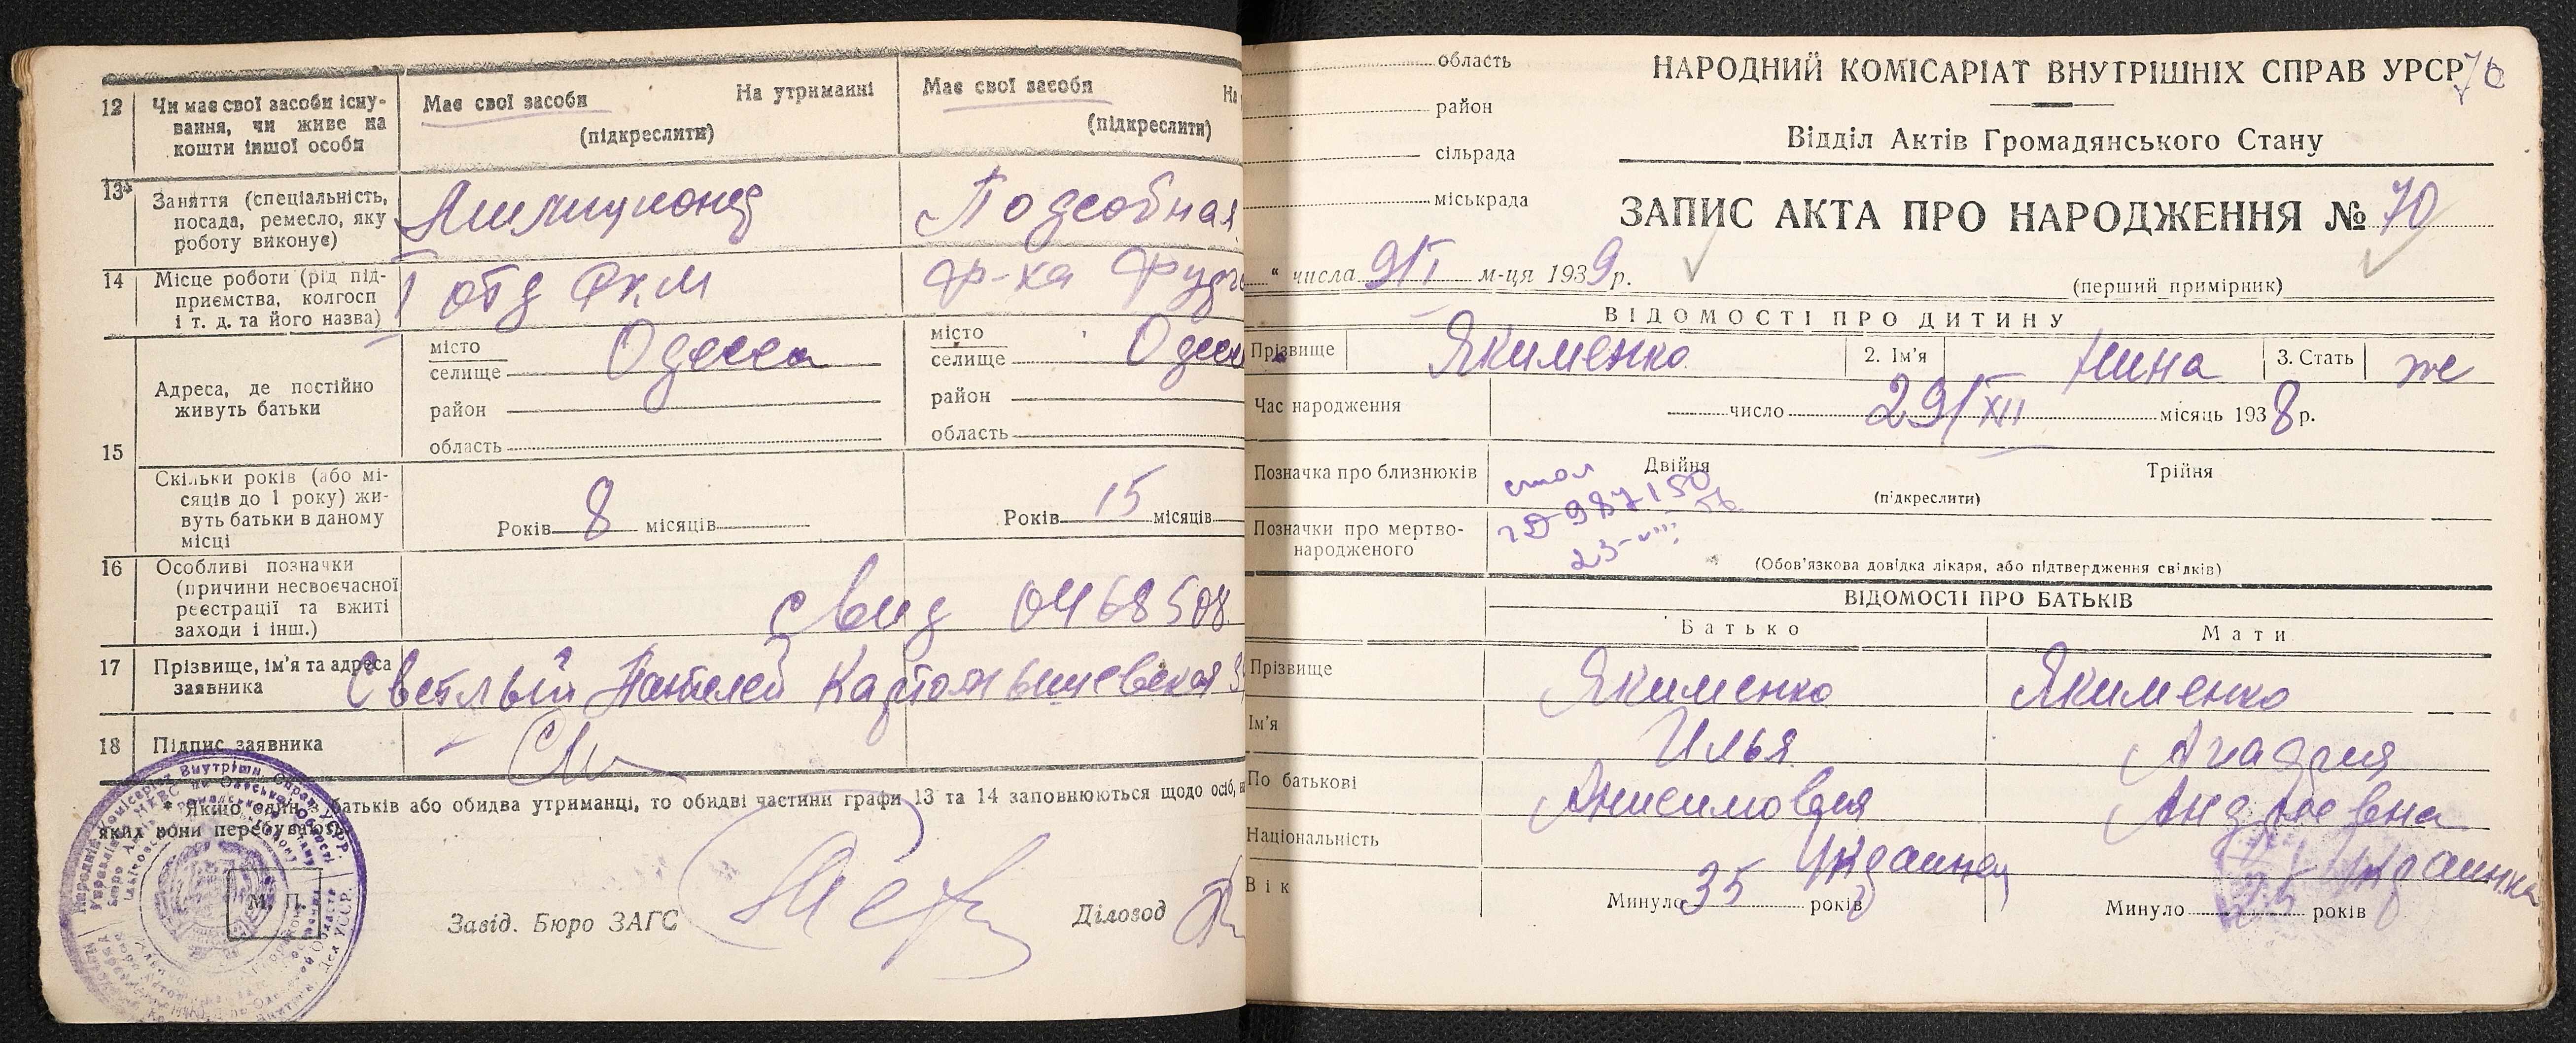 12 Чи має свої засоби існу-
вання, чи живе на
кошти іншої особи
Має свої засоби На утриманні
(підкреслити)
Має свої засоби На
(підкреслити)
13* Заняття (спеціальність,
посада, ремесло, яку
роботу виконує)
Милиционер
Подсобная
14 Місце роботи (рід під-
приємства, колгосп
і т. д. та його назва)
1 отд РКМ
ф-ка
15 Адреса, де постійно
живуть батьки
місто
селище Одесса
район
область
місто
селище Одесс
район
область
Скільки років (або мі-
сяців до 1 року) жи-
вуть батьки в даному
місці
Років 8 місяців
Років 15 місяців
16 Особливі позначки
(причини несвоєчасної
реєстрації та вжиті
заходи і інш.)
свид 0468508
17 Прізвище, ім'я та адреса
заявника
Светлый Пантелей Картамышевская
18 Підпис заявника
* Якщо один з батьків або обидва утриманці, то обидві частини графи 13 та 14 заповнюються щодо осіб, на
яких вони перебувають.
М. П.
Завід. Бюро ЗАГС Діловод
область
район
сільрада
міськрада
НАРОДНИЙ КОМІСАРІАТ ВНУТРІШНІХ СПРАВ УРСР
Відділ Актів Громадянського Стану
ЗАПИС АКТА ПРО НАРОДЖЕННЯ № 70
" числа 9/I м-ця 1939 р.
(перший примірник)
ВІДОМОСТІ ПРО ДИТИНУ
Прізвище Якименко 2. Ім'я Нина 3. Стать же
Час народження число 29/XII місяць 1938 р.
Позначка про близнюків Двійня Трійня
(підкреслити)
Позначки про мертво-
народженого
(Обов'язкова довідка лікаря, або підтвердження свідків)
ВІДОМОСТІ ПРО БАТЬКІВ
Батько Мати
Прізвище Якименко Якименко
Ім'я Илья
По батькові Анисимович Андреевна
Національність Украинец Украинка
Вік Минуло 35 років Минуло років